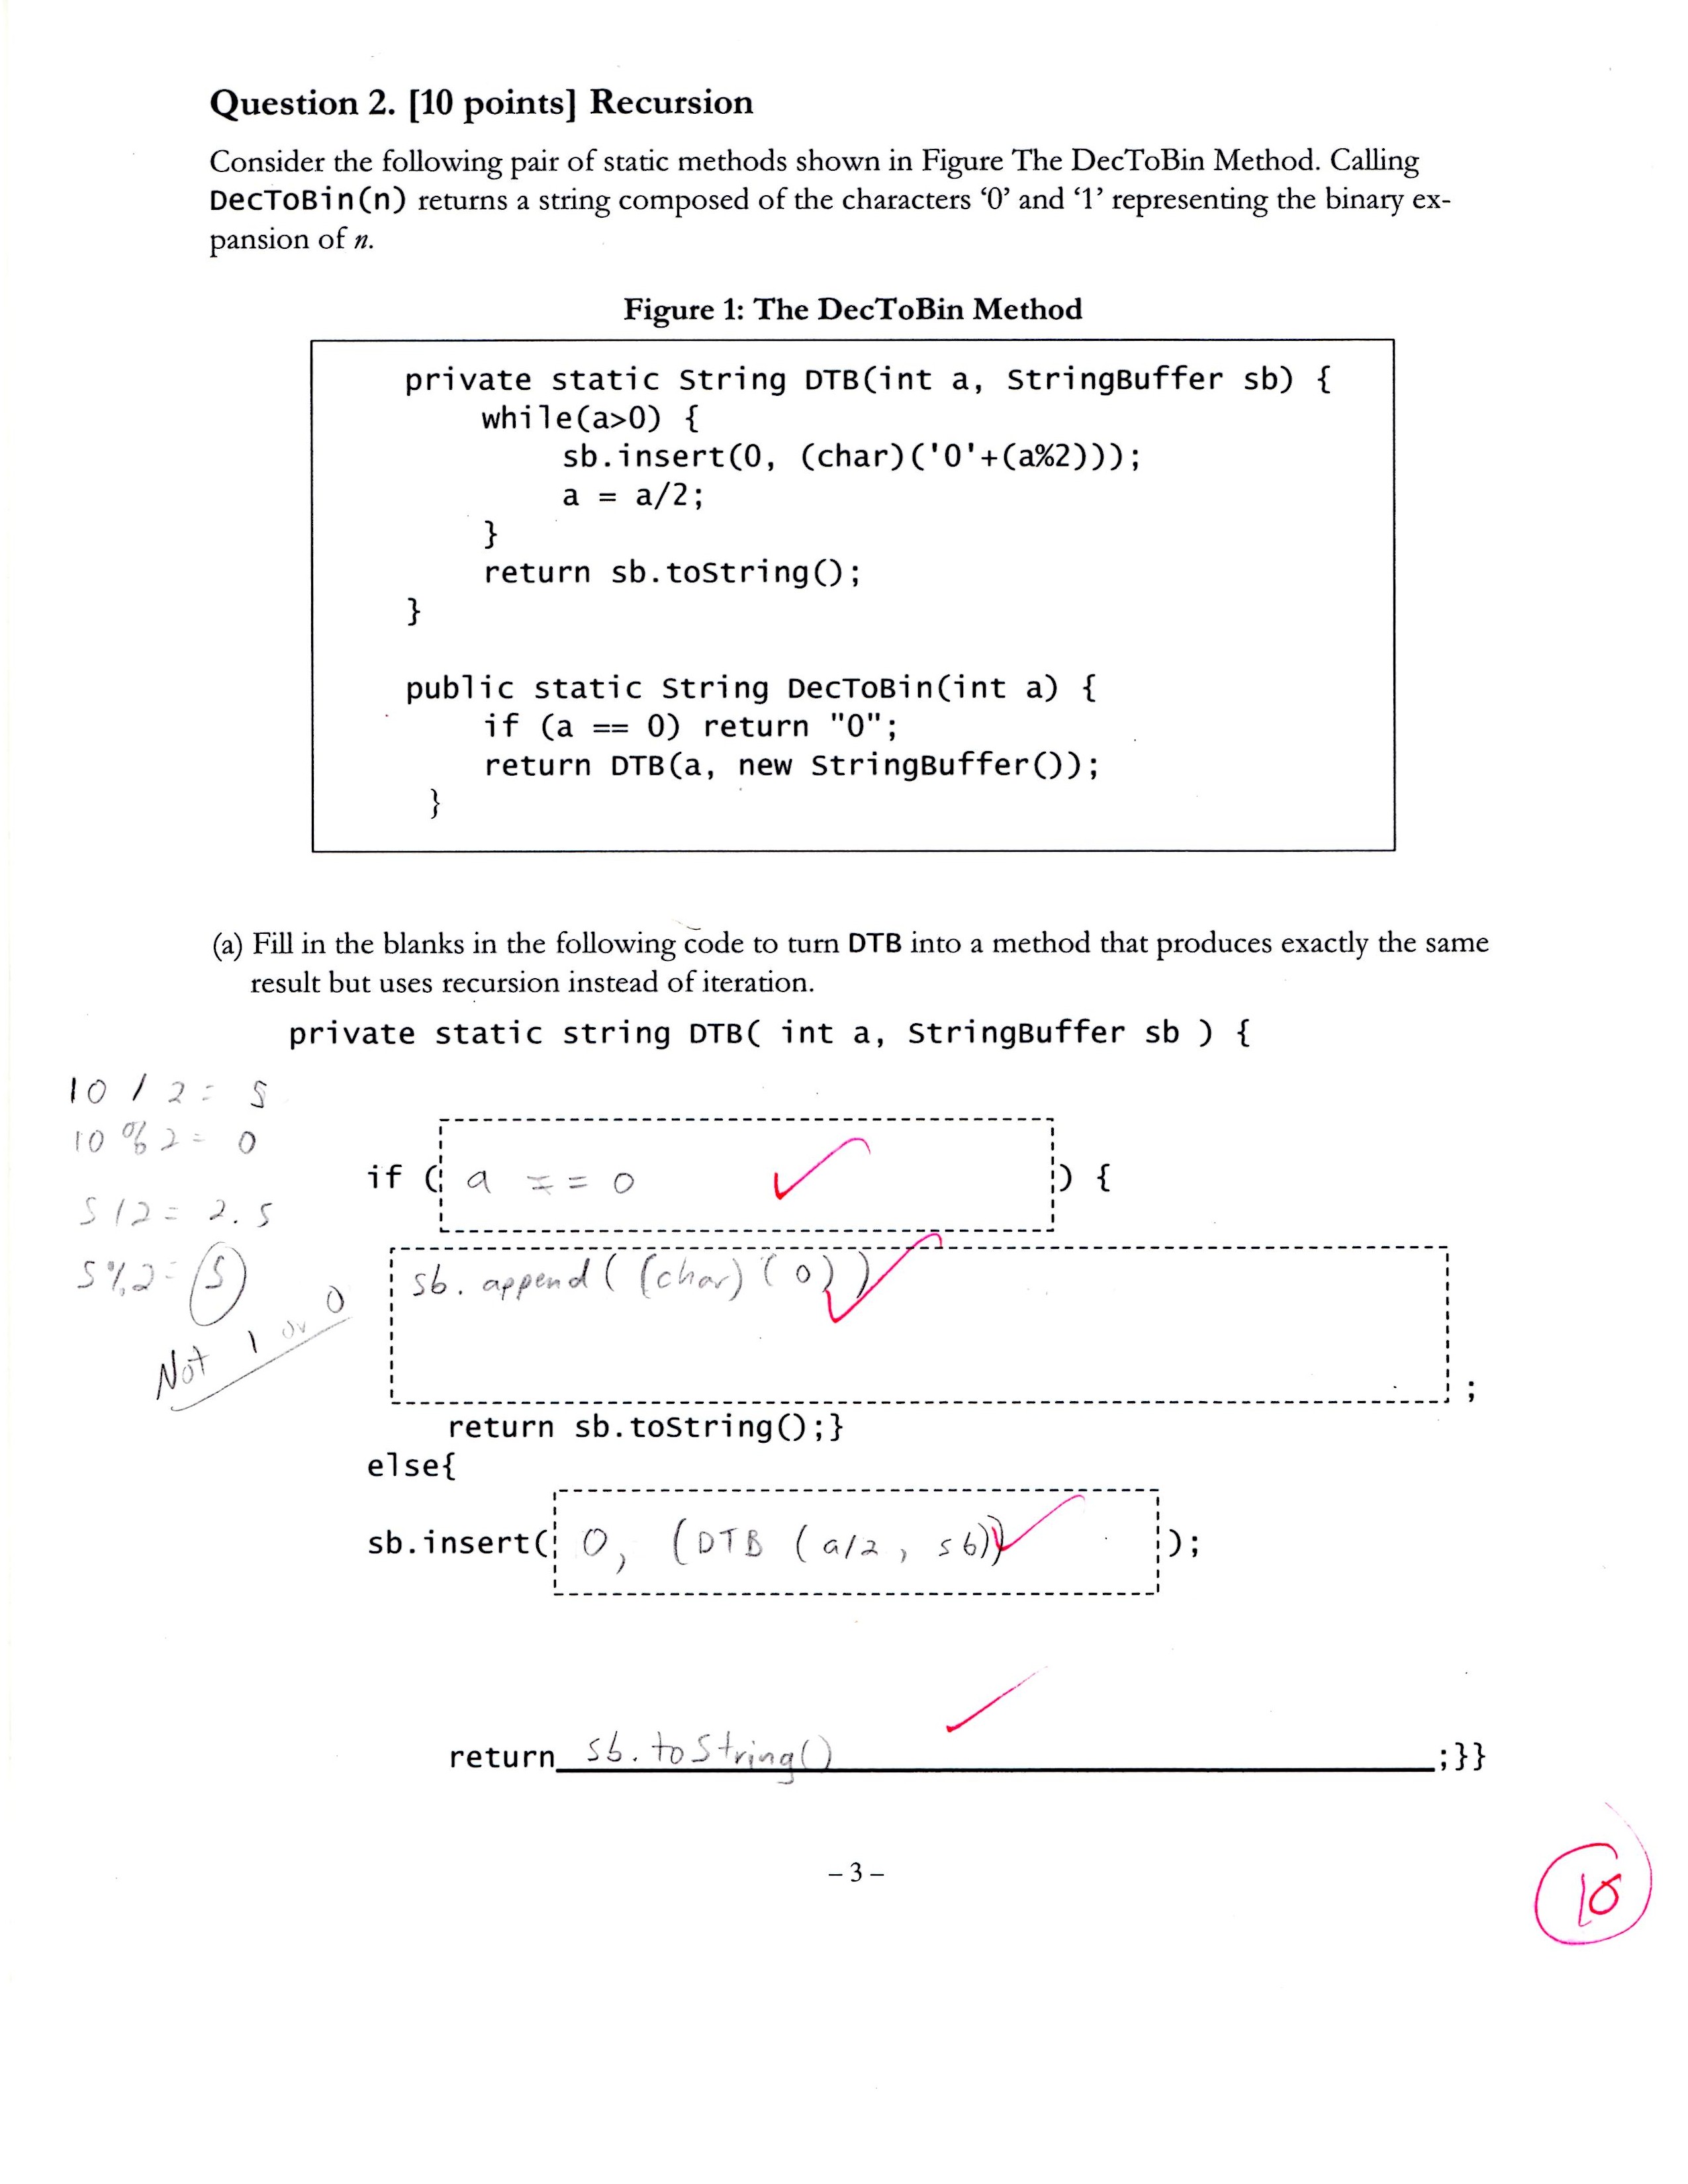 Question 2. [10 points] Recursion
Consider the following pair of static methods shown in Figure The DecToBin Method. Calling
DecToBin(n) returns a string composed of the characters ‘0’ and ‘1’ representing the binary ex-
pansion of n.
Figure 1: The DecToBin Method
private static String DTB(int a, StringBuffer sb) {
while(a>0) {
sb.insert(0, (char)('0'+(a%2)));
a = a/2;
}
return sb.toString();
}
public static String DecToBin(int a) {
if (a == 0) return "0";
return DTB(a, new StringBuffer());
}
(a) Fill in the blanks in the following code to turn DTB into a method that produces exactly the same
result but uses recursion instead of iteration.
private static string DTB( int a, StringBuffer sb ) {
10 / 2 = 5
10 % 2 = 0
if ( a == 0 ) {
5 / 2 = 2.5
5 % 2 = 5
Not 1 or 0
sb. append ( (char) ( 0 ) )
;
return sb.toString();}
else{
sb.insert( 0, (DTB ( a/2 , sb)) );
return sb. toString() ;}}
– 3 –
10